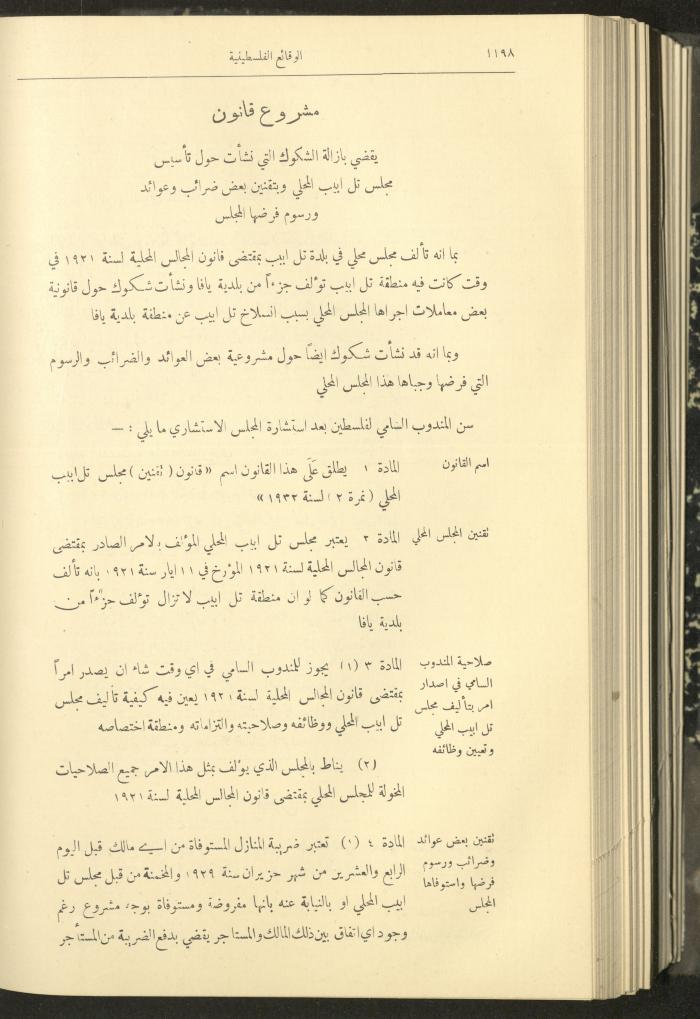 ١١٩٨
الوقائع الفلسطينية
مشروع قانون
يقضي بازالة الشكوك التي نشأت حول تأسيس
مجلس تل ابيب المحلي وبتقنين بعض ضرائب وعوائد
ورسوم فرضها المجلس
بما انه تألف مجلس محلي في بلدة تل ابيب بمقتضى قانون المجالس المحلية لسنة ١٩٢١ في
وقت كانت فيه منطقة تل ابيب تؤلف جزءاً من بلدية يافا ونشأت شكوك حول قانونية
بعض معاملات اجراها المجلس المحلي بسبب انسلاخ تل ابيب عن منطقة بلدية يافا
وبما انه قد نشأت شكوك ايضاً حول مشروعية بعض العوائد والضرائب والرسوم
التي فرضها وجباها هذا المجلس المحلي
سن المندوب السامي لفلسطين بعد استشارة المجلس الاستشاري ما يلي : —
اسم القانون
المادة ١ يطلق عَلَى هذا القانون اسم « قانون ( تقنين ) مجلس تل ابيب
المحلي ( نمرة ٢ ) لسنة ١٩٣٢ »
تقنين المجلس المحلي
المادة ٢ يعتبر مجلس تل ابيب المحلي المؤلف بالامر الصادر بمقتضى
قانون المجالس المحلية لسنة ١٩٢١ المؤرخ في ١١ ايار سنة ١٩٢١ بانه تألف
حسب القانون كما لو ان منطقة تل ابيب لا تزال تؤلف جزءاً من
بلدية يافا
صلاحية المندوب
السامي في اصدار
امر بتأليف مجلس
تل ابيب المحلي
وتعيين وظائفه
المادة ٣ (١) يجوز للمندوب السامي في اي وقت شاء ان يصدر امراً
بمقتضى قانون المجالس المحلية لسنة ١٩٢١ يعين فيه كيفية تأليف مجلس
تل ابيب المحلي ووظائفه وصلاحيته والتزاماته ومنطقة اختصاصه
(٢) يناط بالمجلس الذي يؤلف بمثل هذا الامر جميع الصلاحيات
المخولة للمجلس المحلي بمقتضى قانون المجالس المحلية لسنة ١٩٢١
تقنين بعض عوائد
وضرائب ورسوم
فرضها واستوفاها
المجلس
المادة ٤ (١) تعتبر ضريبة المنازل المستوفاة من اي مالك قبل اليوم
الرابع والعشرين من شهر حزيران سنة ١٩٢٩ والمخمنة من قبل مجلس تل
ابيب المحلي او بالنيابة عنه بانها مفروضة ومستوفاة بوجه مشروع رغم
وجود اي اتفاق بين ذلك المالك والمستاجر يقضي بدفع الضريبة من المستأجر